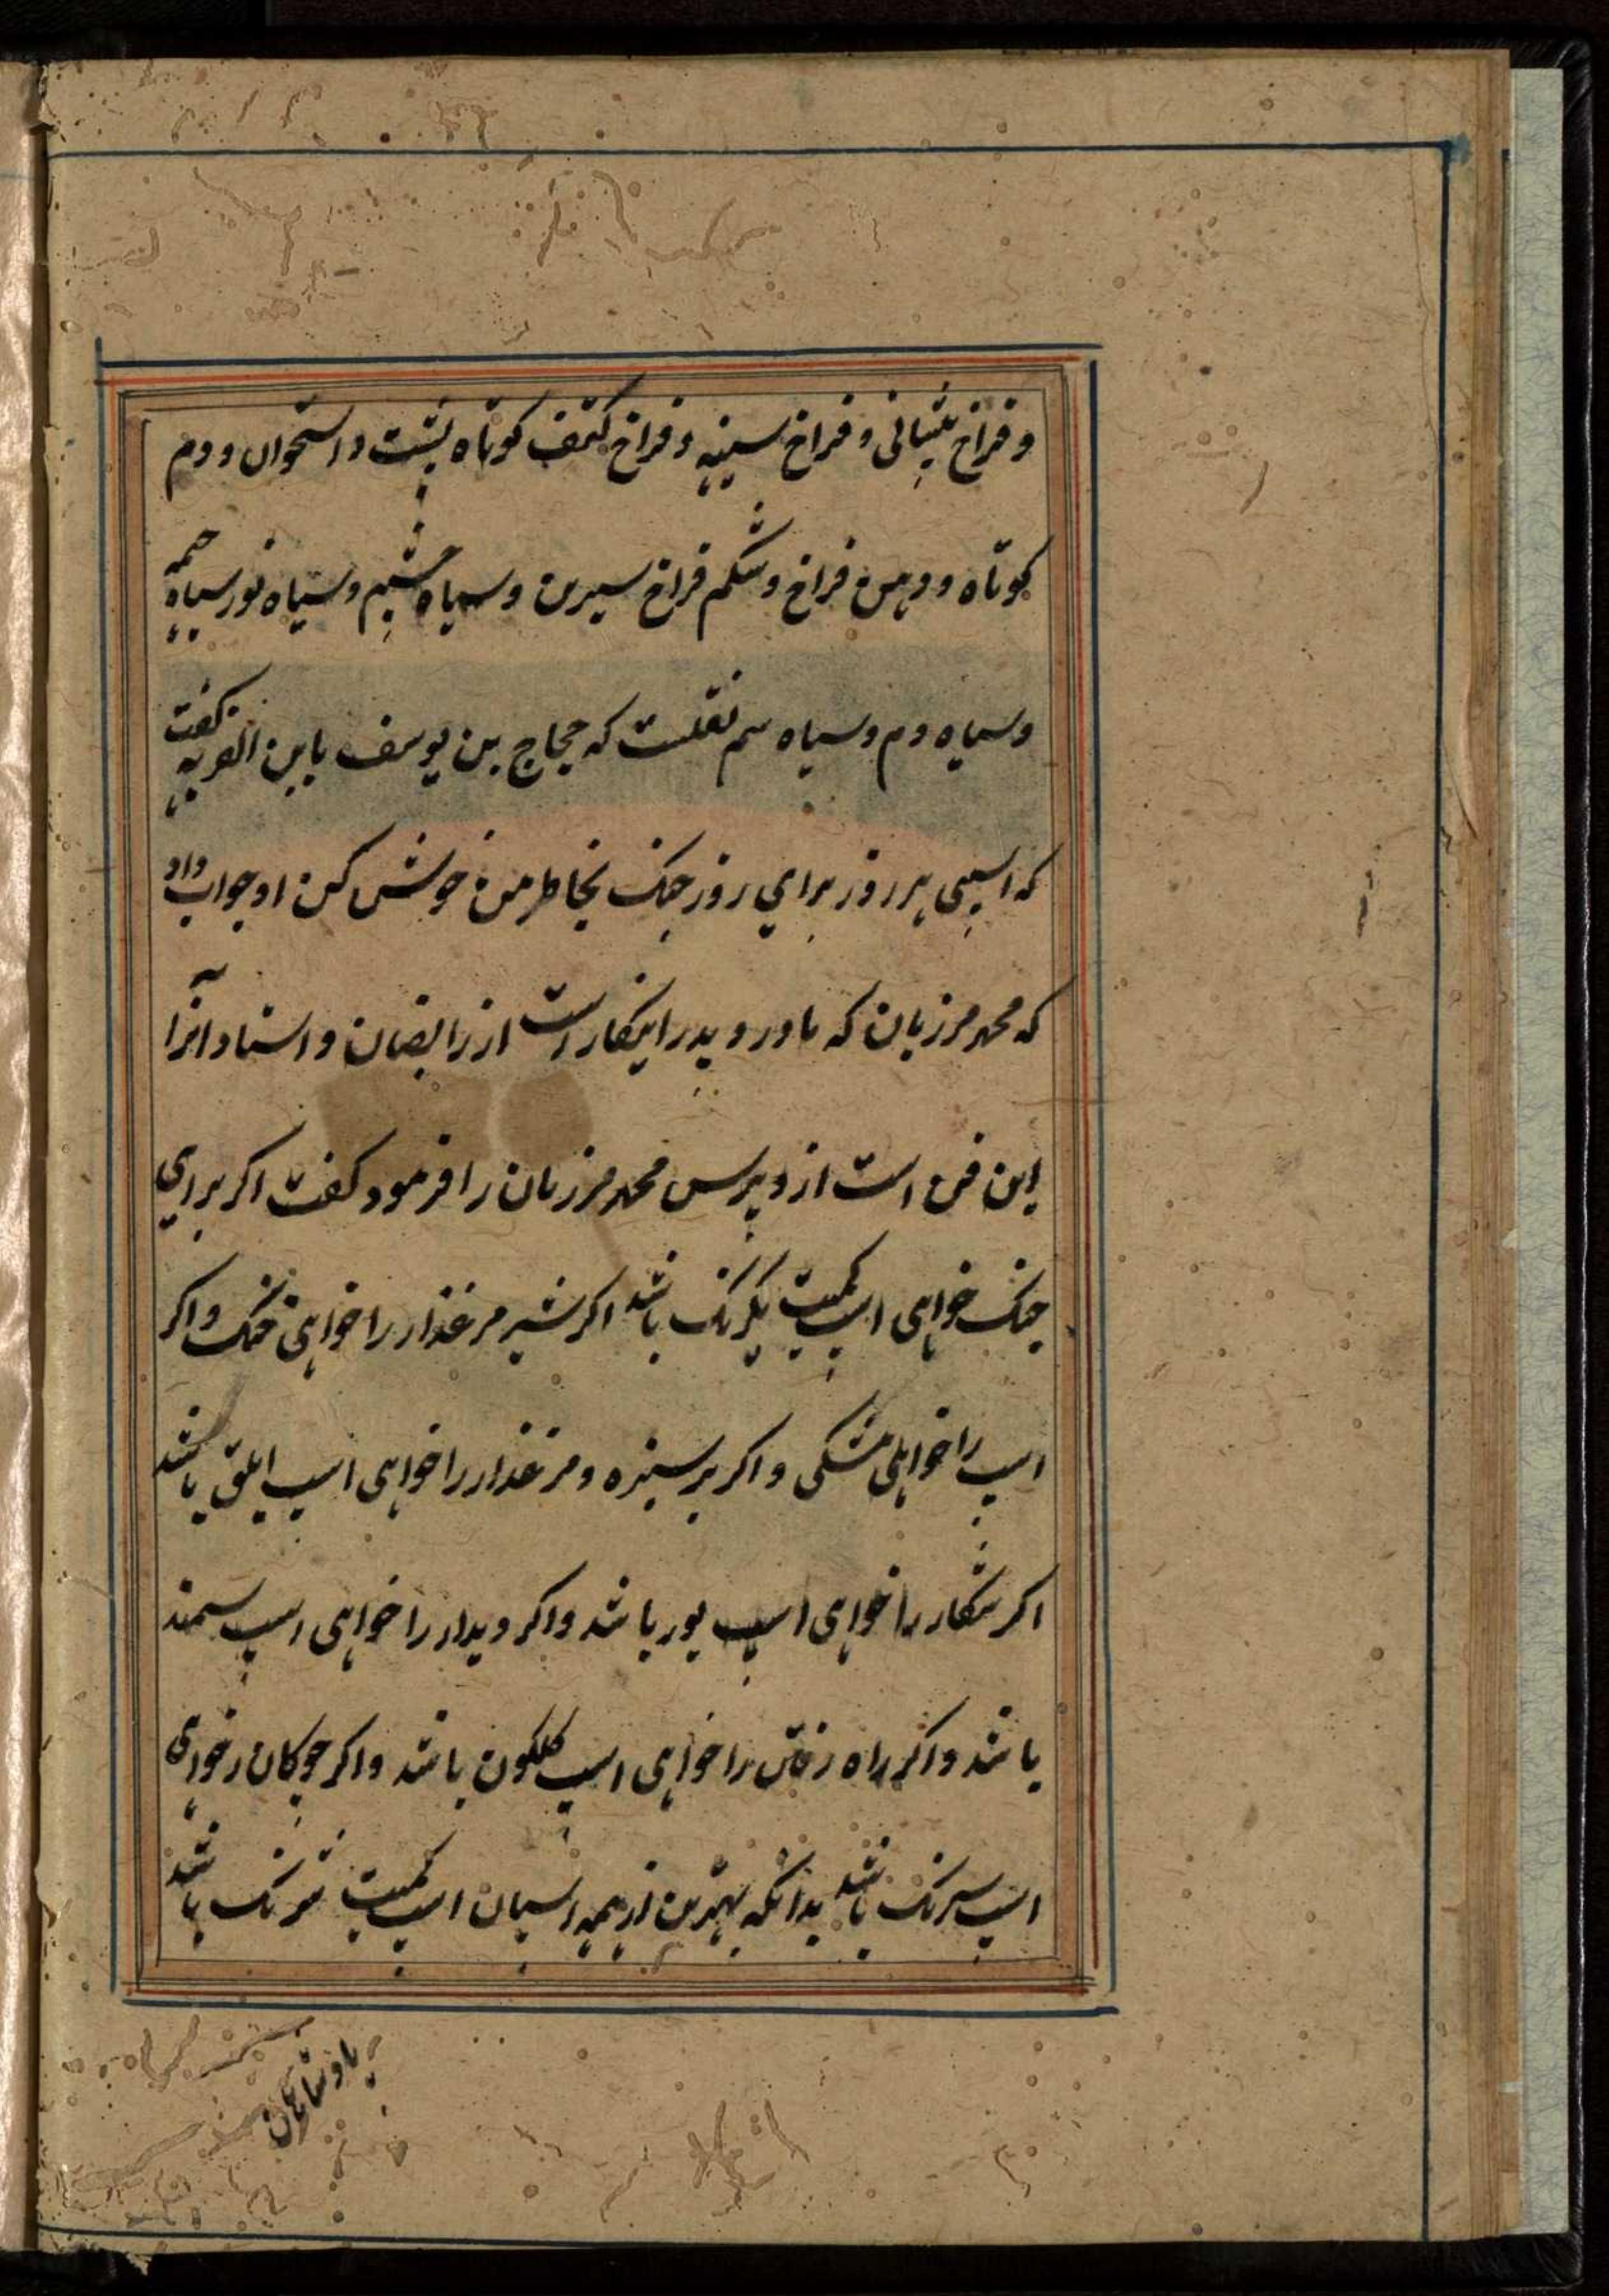 و فراخ پیشانی و فراخ سینه و فراخ کتف کوتاه پشت و استخوان و دم
کوتاه و دهن فراخ و شکم فراخ سیرین و سیاه چشم و سیاه سیاه
و سیاه دم و سیاه سم نقلست که حجاج بن یوسف بابن القریه گفت
که اسپی هر روز برای روز جنک بخاطر من خوش کن او جواب داد
که محمد مرزبان که مادر و پدر اینکار است از رایضان و استاد آنرا
این فن است از و بپرس محمد مرزبان را فرمود کفت اکر برای
جنک خواهی اسپ کمیت یکرنک باشد اکر شیر مرغذار را خواهی خنک و اکر
اسپ را خواهی مشکی و اکر بر سبزه و مرغذار را خواهی اسپ ابلق باشد
اکر شکار را خواهی اسپ بور باشد و اکر دیدار را خواهی اسپ سمند
باشد و اکر راه رفتن را خواهی اسپ کلکون باشد و اکر چوکان را خواهی
اسپ سرنک باشد بدانکه بهترین از همه اسپان اسپ کمیت باشد
پادشاهان